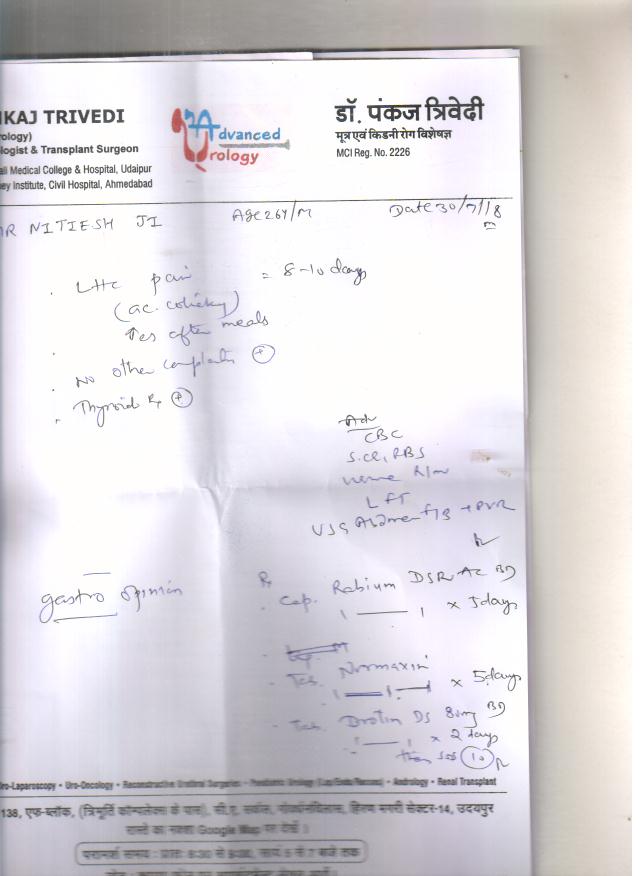 KAJ TRIVEDI
ology)
logist & Transplant Surgeon
ali Medical College & Hospital, Udaipur
ey Institute, Civil Hospital, Ahmedabad
Advanced
Urology
डॉ. पंकज त्रिवेदी
मूत्र एवं किडनी रोग विशेषज्ञ
MCI Reg. No. 2226
MR NITIESH JI
Age 26Y/M
Date 30/7/18
pain = 8-10 days
(ac. colicky)
↑es after meals
No other complaints +
Thyroid Rx +
Adv
CBC
S.CR, RBS
urine R/m
LFT
USG Abdomen + PVR
gastro opinion
Rx
Cap. Rabium DSR AC BD
1 — 1 x 5 days
Tab. Normaxin
1 — 1 — 1 x 5 days
Tab. Drotin DS 80mg BD
1 — 1 x 2 days
then sos 10
ro-Laparoscopy • Uro-Oncology • Reconstructive Urethral Surgeries • Paediatric Urology • Andrology • Renal Transplant
138, एफ-ब्लॉक, (त्रिमूर्ति कॉम्पलेक्स के पास), सी.ए. सर्कल, हिरण मगरी सेक्टर-14, उदयपुर
रास्ते का नक्शा Google Map पर देखें।
परामर्श समय : प्रातः 8:30 से 9:00, सायं 5 से 7 बजे तक